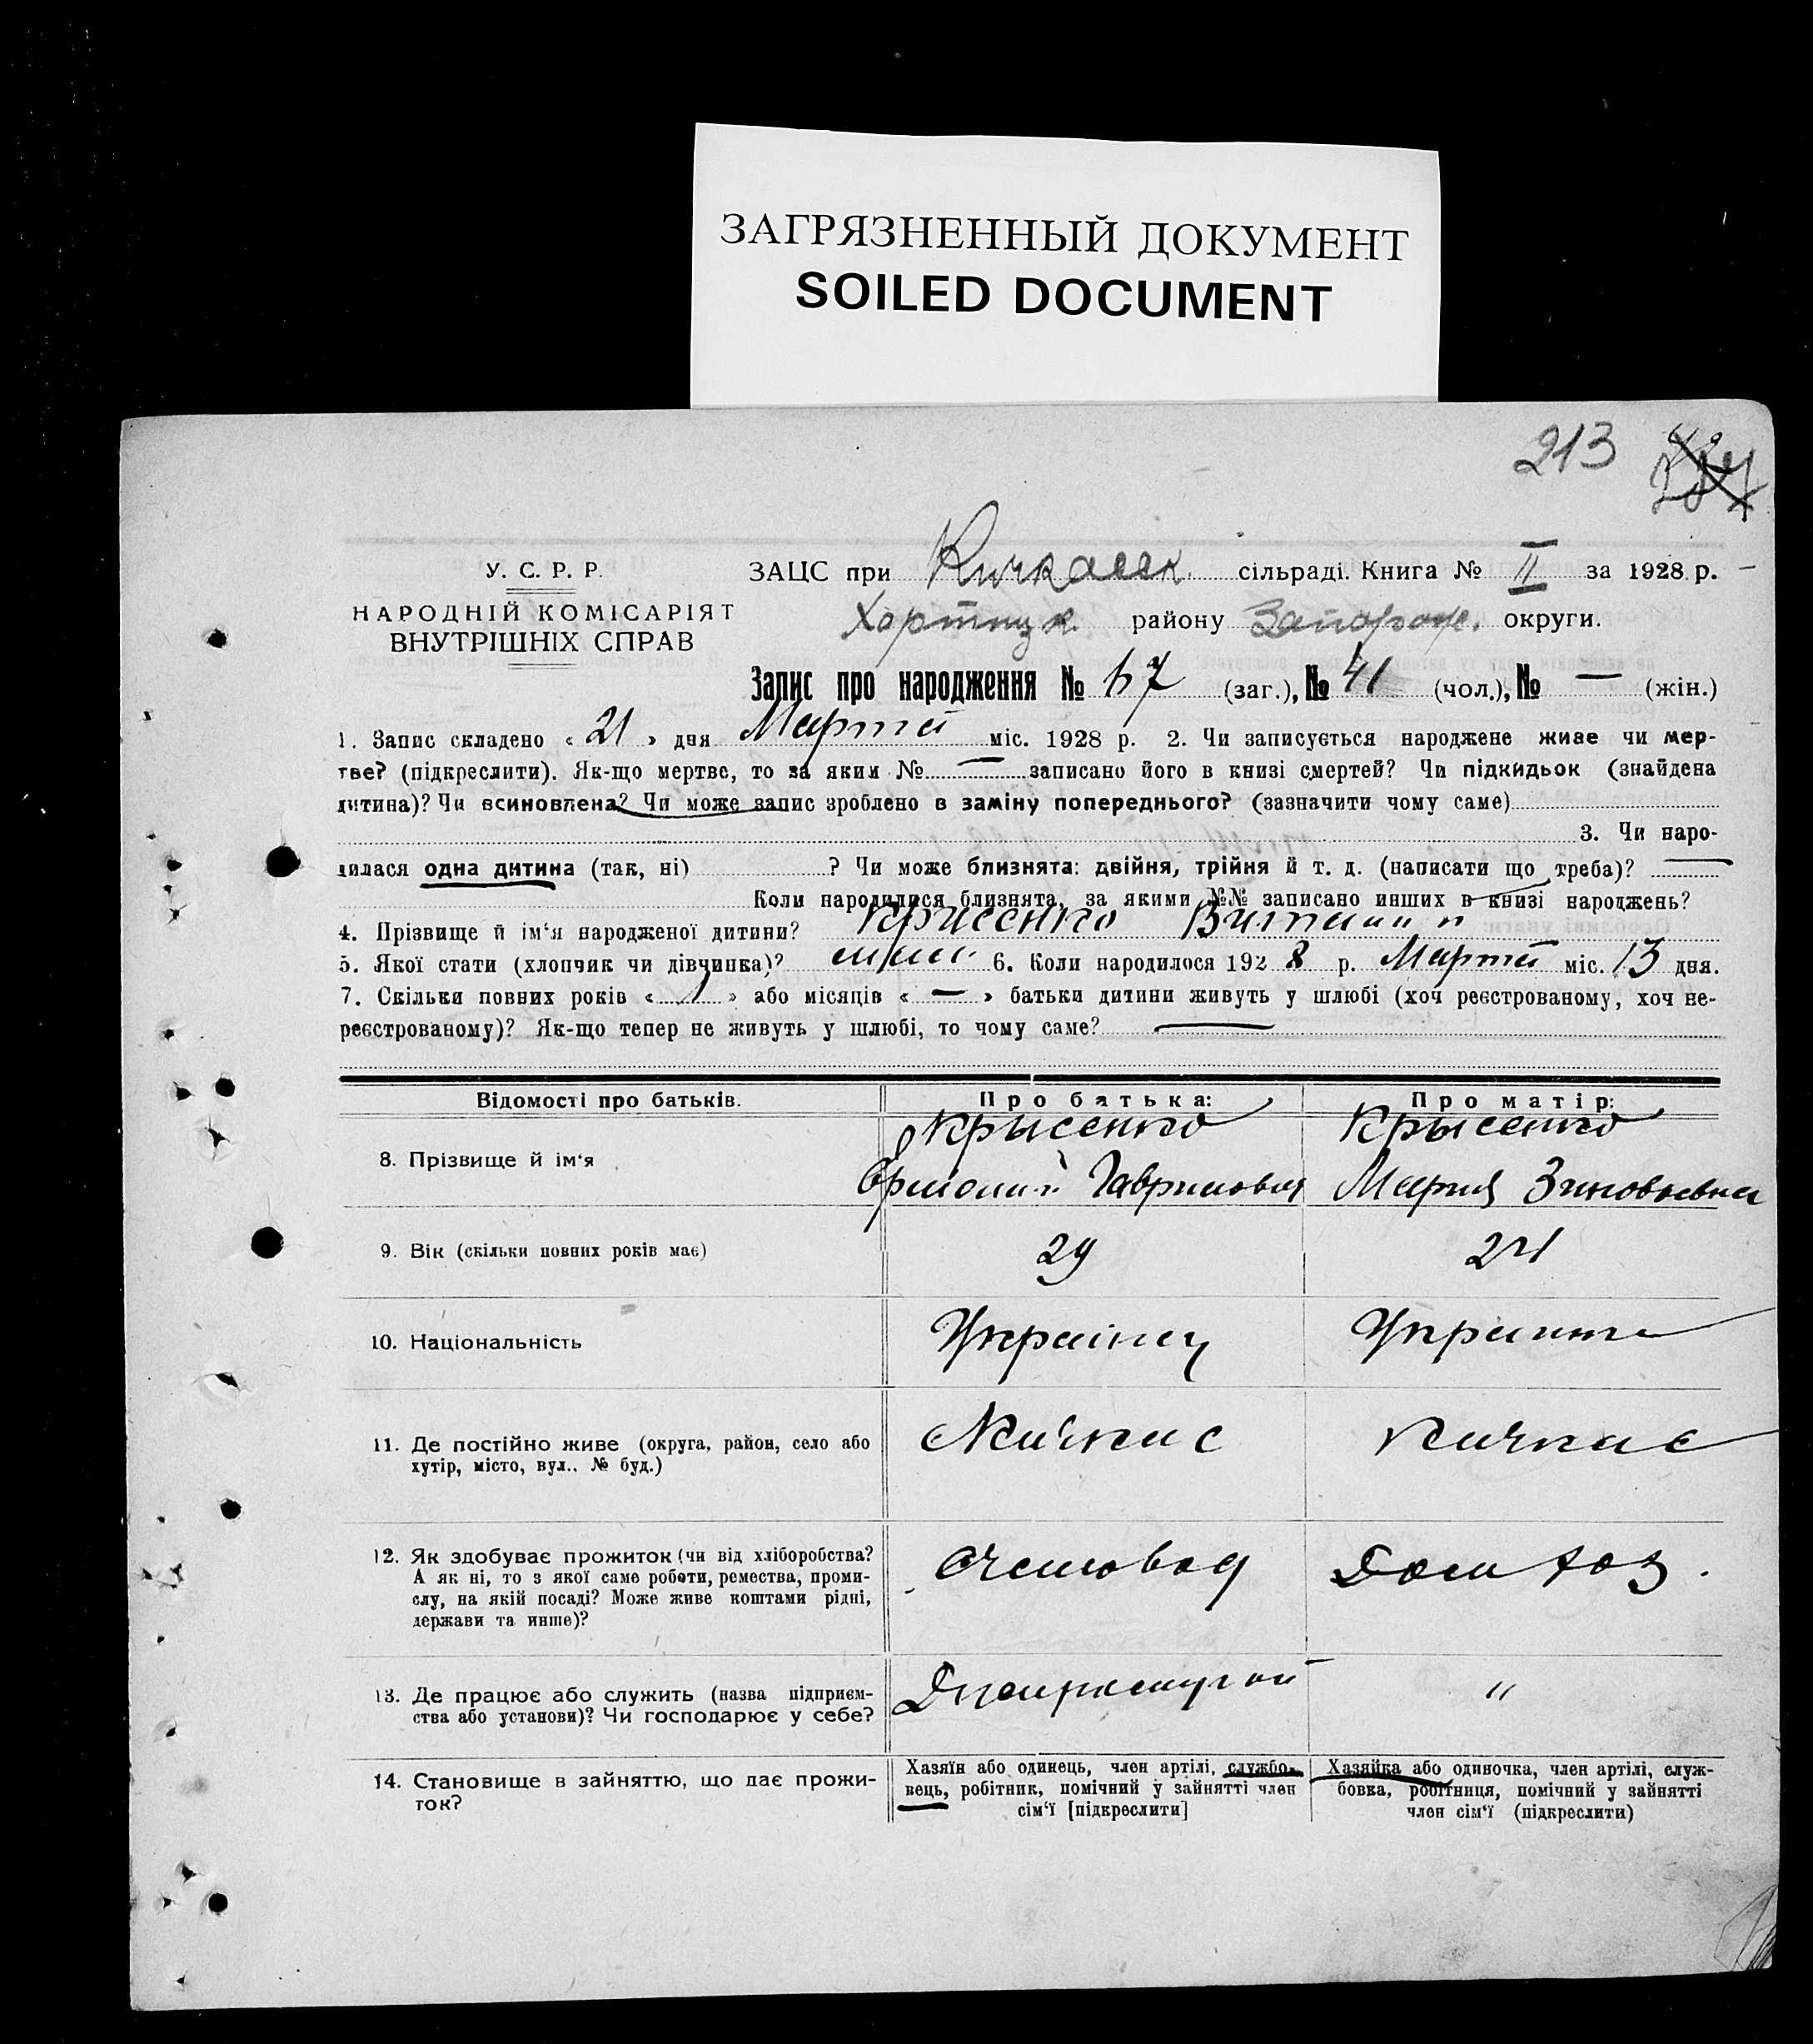 ЗАГРЯЗНЕННЫЙ ДОКУМЕНТ
SOILED DOCUMENT
213
У. С. Р. Р.
НАРОДНІЙ КОМІСАРІЯТ
ВНУТРІШНІХ СПРАВ
ЗАЦС при Кичкасск. сільраді. Книга № II за 1928 р.
Хортицк. району Запорож. округи.
Запис про народження № 67 (заг.), № 41 (чол.), № — (жін.)
1. Запис складено « 21 » дня Марта міс. 1928 р. 2. Чи записується народжене живе чи мер-
тве? (підкреслити). Як-що мертве, то за яким № — записано його в книзі смертей? Чи підкидьок (знайдена
дитина)? Чи всиновлена? Чи може запис зроблено в заміну попереднього? (зазначити чому саме)
3. Чи наро-
дилася одна дитина (так, ні) ? Чи може близнята: двійня, трійня й т. д. (написати що треба)? —
Коли народилися близнята, за якими №№ записано инших в книзі народжень?
4. Прізвище й ім'я народженої дитини? Крисенко Виталий
5. Якої стати (хлопчик чи дівчинка)? 6. Коли народилося 1928 р. Марта міс. 13 дня.
7. Скільки повних років « 1 » або місяців « — » батьки дитини живуть у шлюбі (хоч реєстрованому, хоч не-
реєстрованому)? Як-що тепер не живуть у шлюбі, то чому саме? —
Відомості про батьків. Про батька: Про матір:
Крысенко Крысенко
8. Прізвище й ім'я
Гаврилович Мария Зиновьевна
9. Вік (скільки повних років має) 29 24
10. Національність Украінец Украинка
11. Де постійно живе (округа, район, село або Кичкас Кичкас
хутір, місто, вул.. № буд.)
12. Як здобуває прожиток (чи від хліборобства? Счетовод Дом хоз.
А як ні, то з якої саме роботи, ремества, проми-
слу, на якій посаді? Може живе коштами рідні,
держави та инше)?
13. Де працює або служить (назва підприєм- "
ства або установи)? Чи господарює у себе?
14. Становище в зайняттю, що дає прожи-
ток?
Хазяїн або одинець, член артілі, службо-
вець, робітник, помічний у зайнятті член
сім'ї [підкреслити]
Хазяйка або одиночка, член артілі, служ-
бовка, робітниця, помічний у зайнятті
член сім'ї (підкреслити)